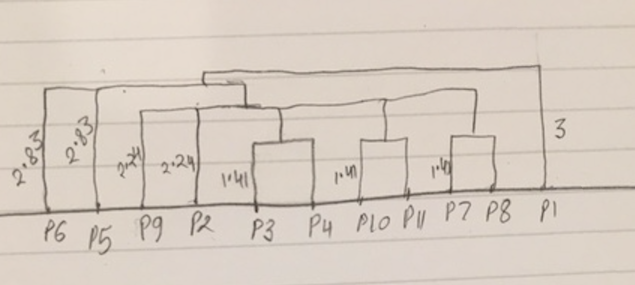 3
2.83
2.83
2.24
2.24
1.41
1.41
1.41
P6 P5 P9 P2 P3 P4 P10 P11 P7 P8 P1